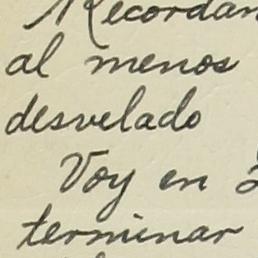 Recordan
al menos
desvelado
Voy en
terminar